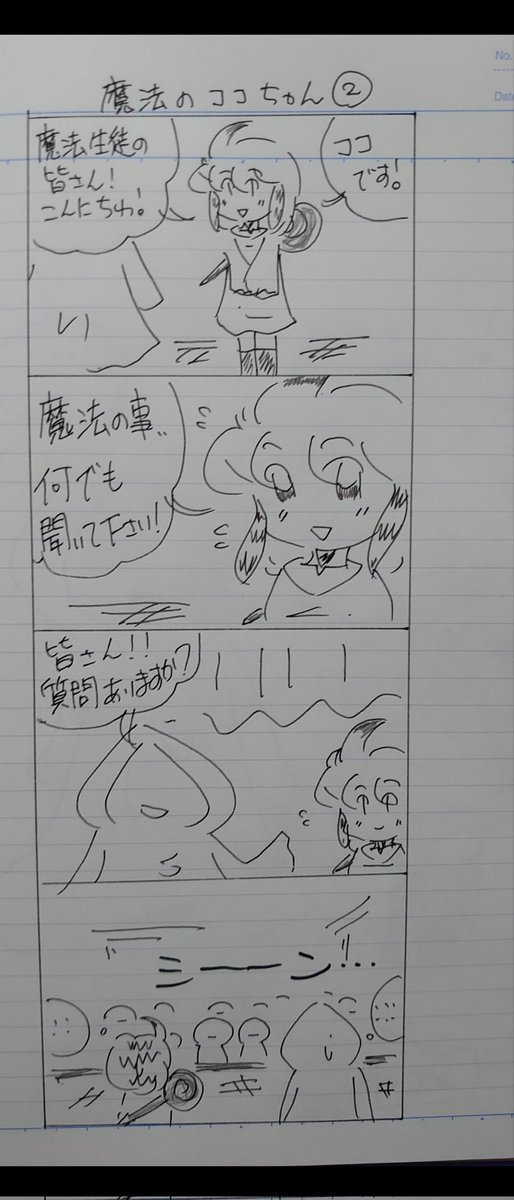 魔法のココちゃん②
No.
Date
ココ
です!
魔法生徒の
皆さん!
こんにちわ!
魔法の事..
何でも
聞いて下さい!
皆さん!!
質問ありますか?
シーーン!..